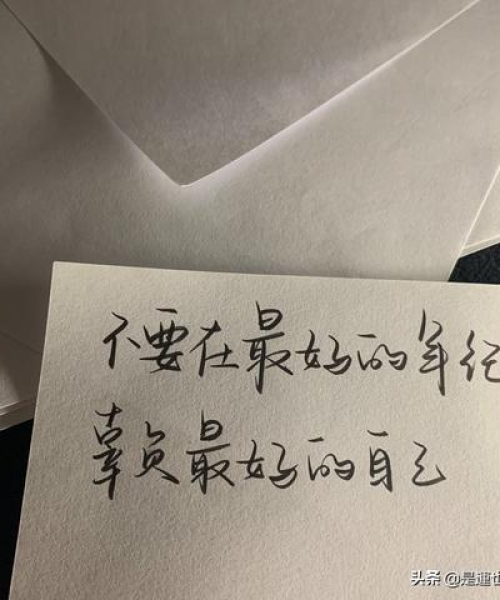 不要在最好的年纪
辜负最好的自己
头条 @是